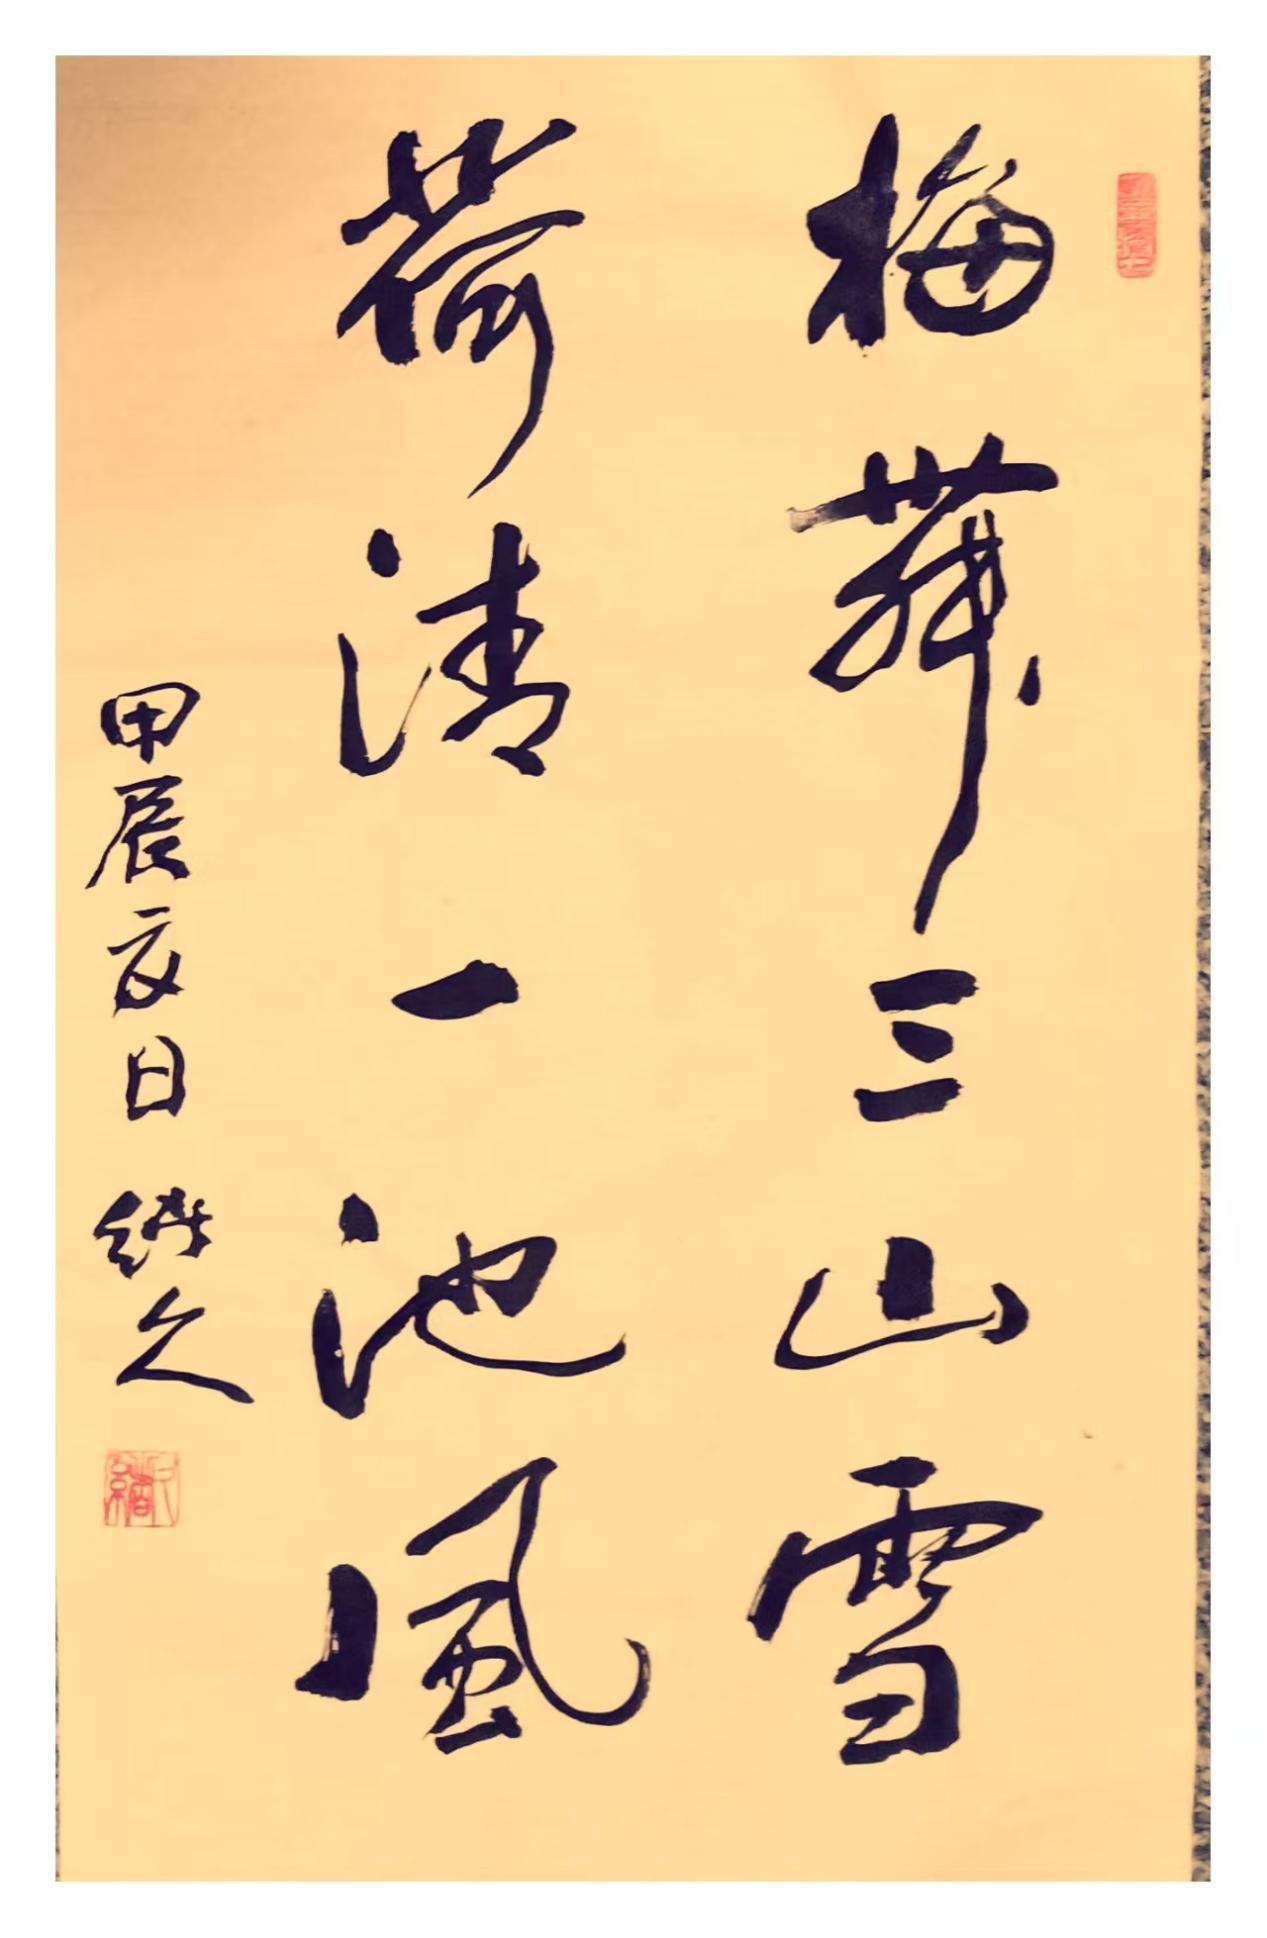 梅舞三山雪
荷清一池风
甲辰夏日 继久